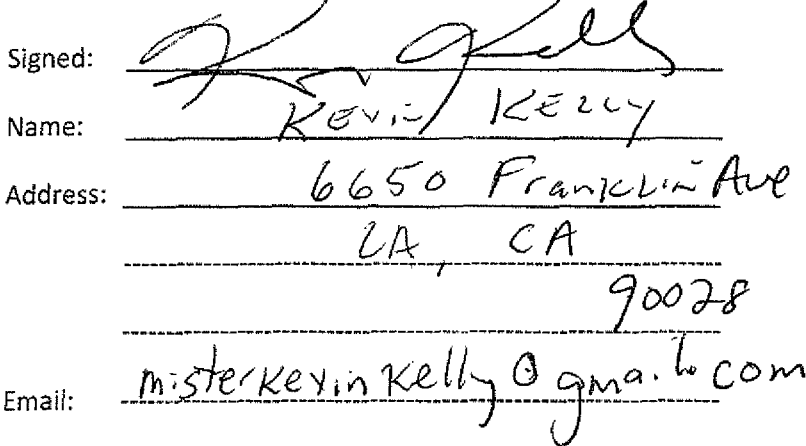 Signed: K Kelly
Name: KEVIN KELLY
Address: 6650 Franklin Ave
LA, CA
90028
Email: misterkevinkelly@gmail.com